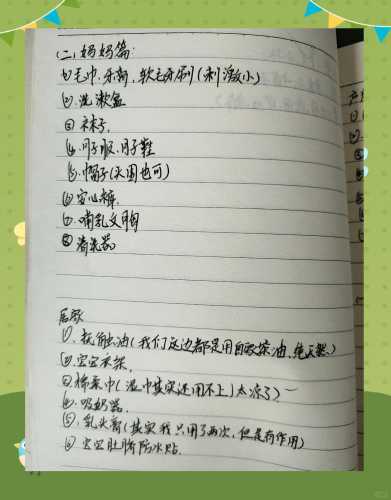 (二)妈妈篇:
(1)毛巾.牙膏,软毛牙刷(刺激小)
(2).洗漱盆
(3)袜子,
(4).月子服.月子鞋
(5).帽子(头围也可)
(6)安心裤.
(7).哺乳文胸
(8)清洗器.
后致
(1).抚触油(我们这边都是用自家茶油.纯天然)
(2).宝宝衣架.
(3)棉柔巾(湿巾其实还用不上)太凉了)
(4).吸奶器.
(5).乳头膏(其实我只用了两次,但是有作用)
(6)宝宝肚脐防水贴.